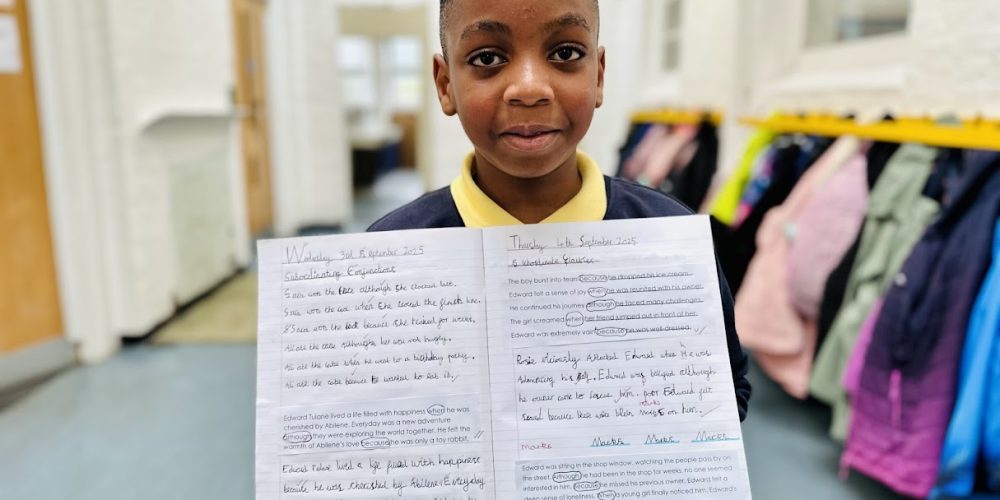 Wednesday 3rd September 2025
Subordinating Conjunctions
Sara won the race although she
Sara won the race when she crossed the finish line.
Sara won the because she trained for weeks.
Ali ate the cake although he was not hungry.
Ali ate the cake when he went to a birthday party.
Ali ate the cake because he wanted to eat it.
Edward Tulane lived a life filled with happiness when he was
cherished by Abilene. Everyday was a new adventure
although they were exploring the world together. He felt the
warmth of Abilene's love because he was only a toy rabbit.
Edward Tulane lived a life filled with happiness
because he was cherished by Abilene. Everyday
Thursday 4th September 2025
Subordinate Clauses
The boy burst into tears because he dropped his ice cream.
Edward felt a sense of joy when he was reunited with his owner.
He continued his journey although he faced many challenges.
The girl screamed when her friend jumped out in front of her.
Edward was extremely vain because he was well-dressed.
Rosie viciously Attacked Edward when He was
Admiring his Edward was although
he owner came to rescue him. poor Edward felt
because there were on him.
marks Marks Marks Marks
Edward was sitting in the shop window, watching the people pass by on
the street. Although he had been in the shop for weeks, no one seemed
interested in him. Because he missed his previous owner, Edward felt a
deep sense of loneliness. When a young girl finally noticed him, Edward's